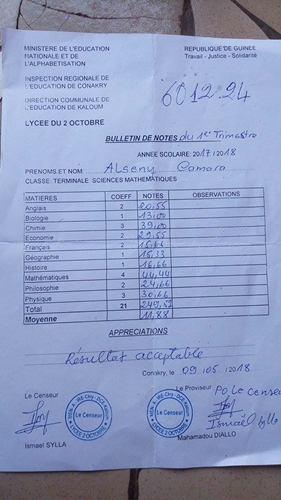 MINISTERE DE L'EDUCATION
NATIONALE ET DE
L'ALPHABETISATION
REPUBLIQUE DE GUINEE
Travail - Justice - Solidarité
INSPECTION REGIONALE DE
L'EDUCATION DE CONAKRY
60 12 24
DIRECTION COMMUNALE DE
L'EDUCATION DE KALOUM
LYCEE DU 2 OCTOBRE
BULLETIN DE NOTES du 1er Trimestre
ANNEE SCOLAIRE: 2017/2018
PRENOMS ET NOM: Alseny Camara
CLASSE: TERMINALE SCIENCES MATHEMATIQUES
MATIERES COEFF NOTES OBSERVATIONS
Anglais 2
Biologie 1 13,00
Chimie 3 39,00
Economie 2
Français 2
Géographie 1 15,33
Histoire 1 16,66
Mathématiques 4 44,44
Philosophie 2 24,66
Physique 3 30,66
Total 21
Moyenne 11,88
APPRECIATIONS
Résultat acceptable
Conakry, le 09/05/2018
Le Censeur
Le Proviseur
P.o Le Censeur
Le Censeur
LYCEE 2 OCTOBRE
Le Censeur
LYCEE 2 OCTOBRE
Ismaël Sylla
Ismael SYLLA
Mahamadou DIALLO